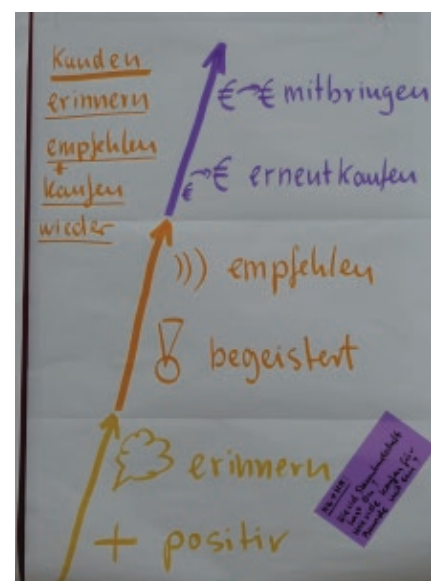 Kunden
erinnern
empfehlen
+
kaufen
wieder
€ → € mitbringen
€ → € erneut kaufen
))) empfehlen
! begeistert
erinnern
+ positiv